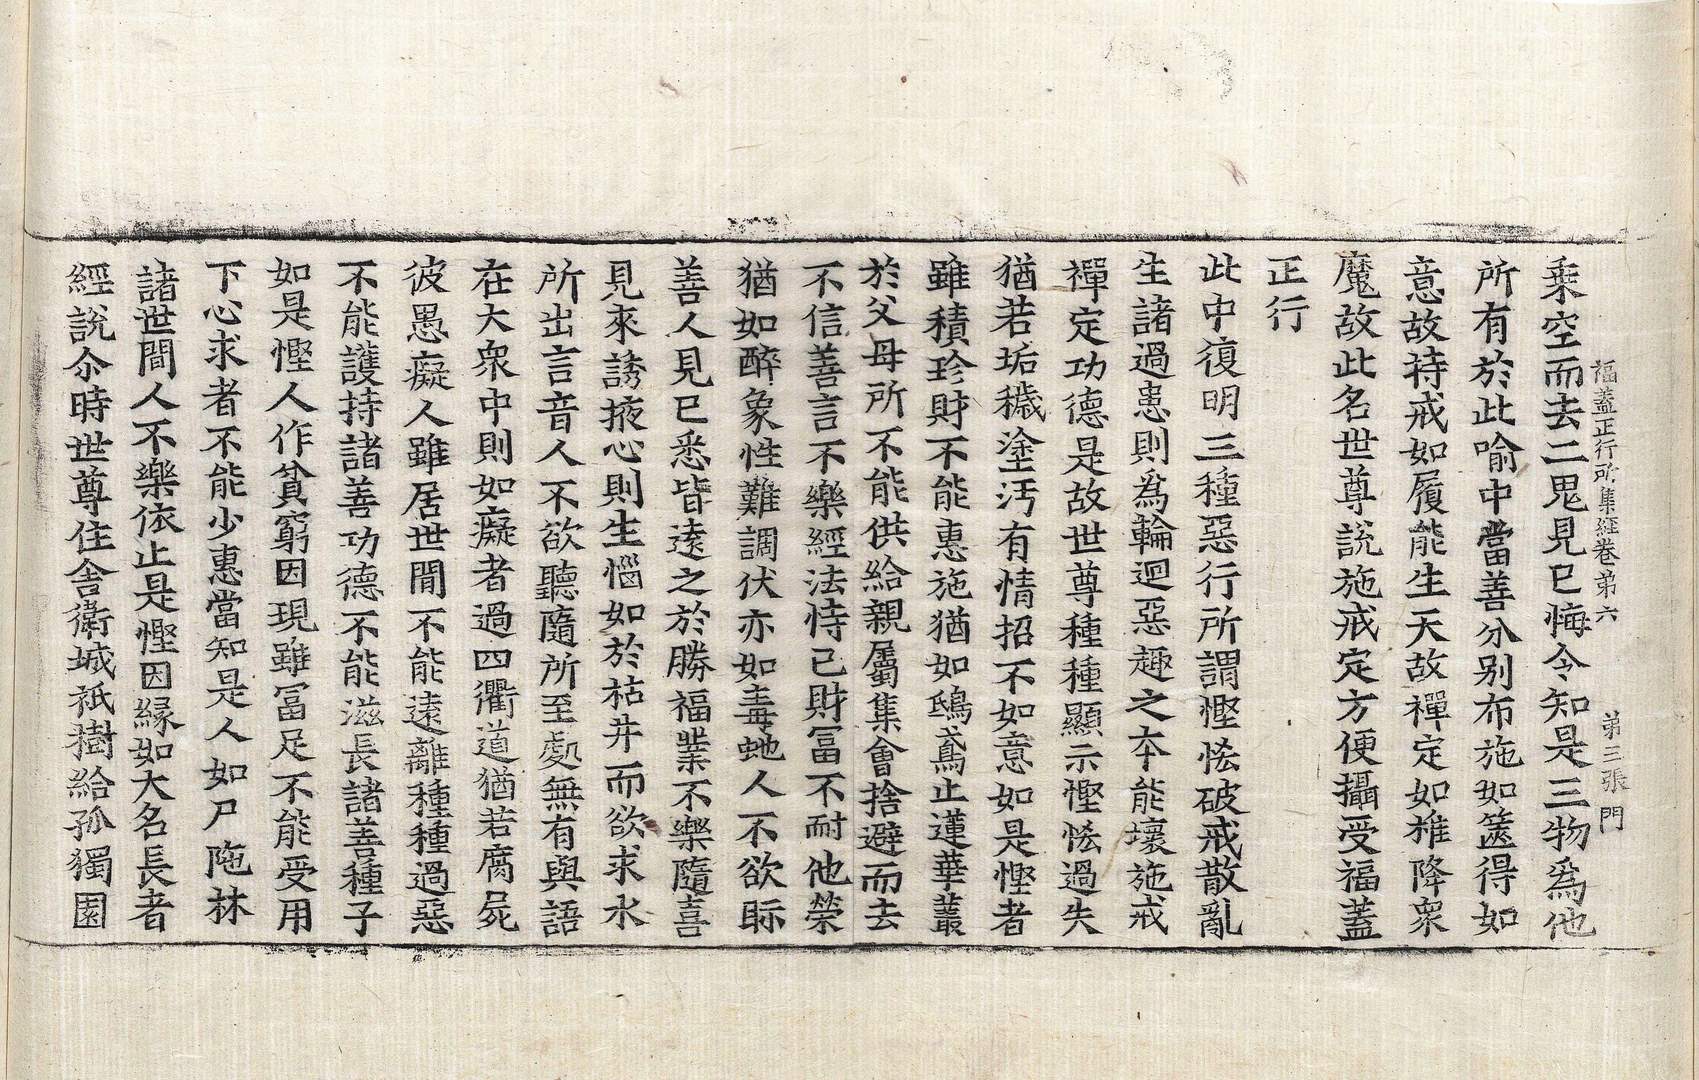 福蓋正行所集經卷第六　第三張　門
乗空而去二鬼見已悔今知是三物爲他
所有於此喻中當善分別布施如篋得如
意故持戒如履能生天故禪定如椎降衆
魔故此名世尊說施戒定方便攝受福蓋
正行
此中復明三種惡行所謂慳悋破戒散亂
生諸過患則爲輪迴惡趣之本能壞施戒
禪定功德是故世尊種種顯示慳悋過失
猶若垢穢塗汚有情招不如意如是慳者
雖積珍財不能惠施猶如鵄鳶止蓮華叢
於父母所不能供給親屬集會捨避而去
不信善言不樂經法恃己財冨不耐他榮
猶如醉象性難調伏亦如毒虵人不欲眎
善人見已悉皆遠之於勝福業不樂隨喜
見來誘掖心則生惱如於枯井而欲求水
所出言音人不欲聽隨所至處無有與語
在大衆中則如癡者過四衢道猶若腐屍
彼愚癡人雖居世閒不能遠離種種過惡
不能護持諸善功德不能滋長諸善種子
如是慳人作貧窮因現雖冨足不能受用
下心求者不能少惠當知是人如尸陁林
諸世間人不樂依止是慳因緣如大名長者
經說尒時世尊住舍衛城祇樹給孤獨園